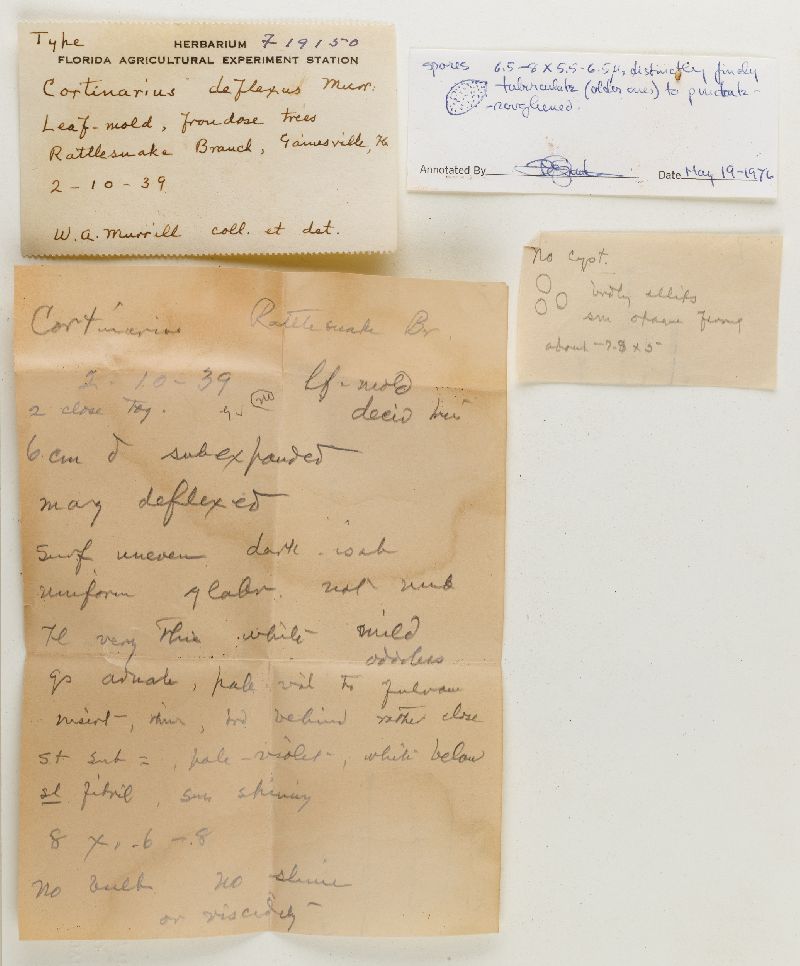 Type
HERBARIUM F 19150
FLORIDA AGRICULTURAL EXPERIMENT STATION
Cortinarius deflexus Murr.
Leaf-mold, frondose trees
Rattlesnake Branch, Gainesville, Fla
2-10-39
W.A. Murrill coll. et det.
spores 6.5-8 x 5.5-6.5 µ, distinctly finely
tuberculate (older ones) to punctate-
-roughened.
Annotated By
Date May 19-1976
No cyst.
brdly ellips
sm opaque
about 7-8 x 5
Cortinarius Rattlesnake Br.
2-10-39 lf-mold
2 close tog. decid
6 cm d subexpanded
marg deflexed
surf uneven dark isab
uniform glabr. not umb
Fl very thin white mild
odorless
gs adnate, pale viol to fulvous
insert, thin, brd behind rather close
st sub =, pale-violet, white below
sl fibril, sm shining
8 x .6-.8
No bulb No slime
or viscidity